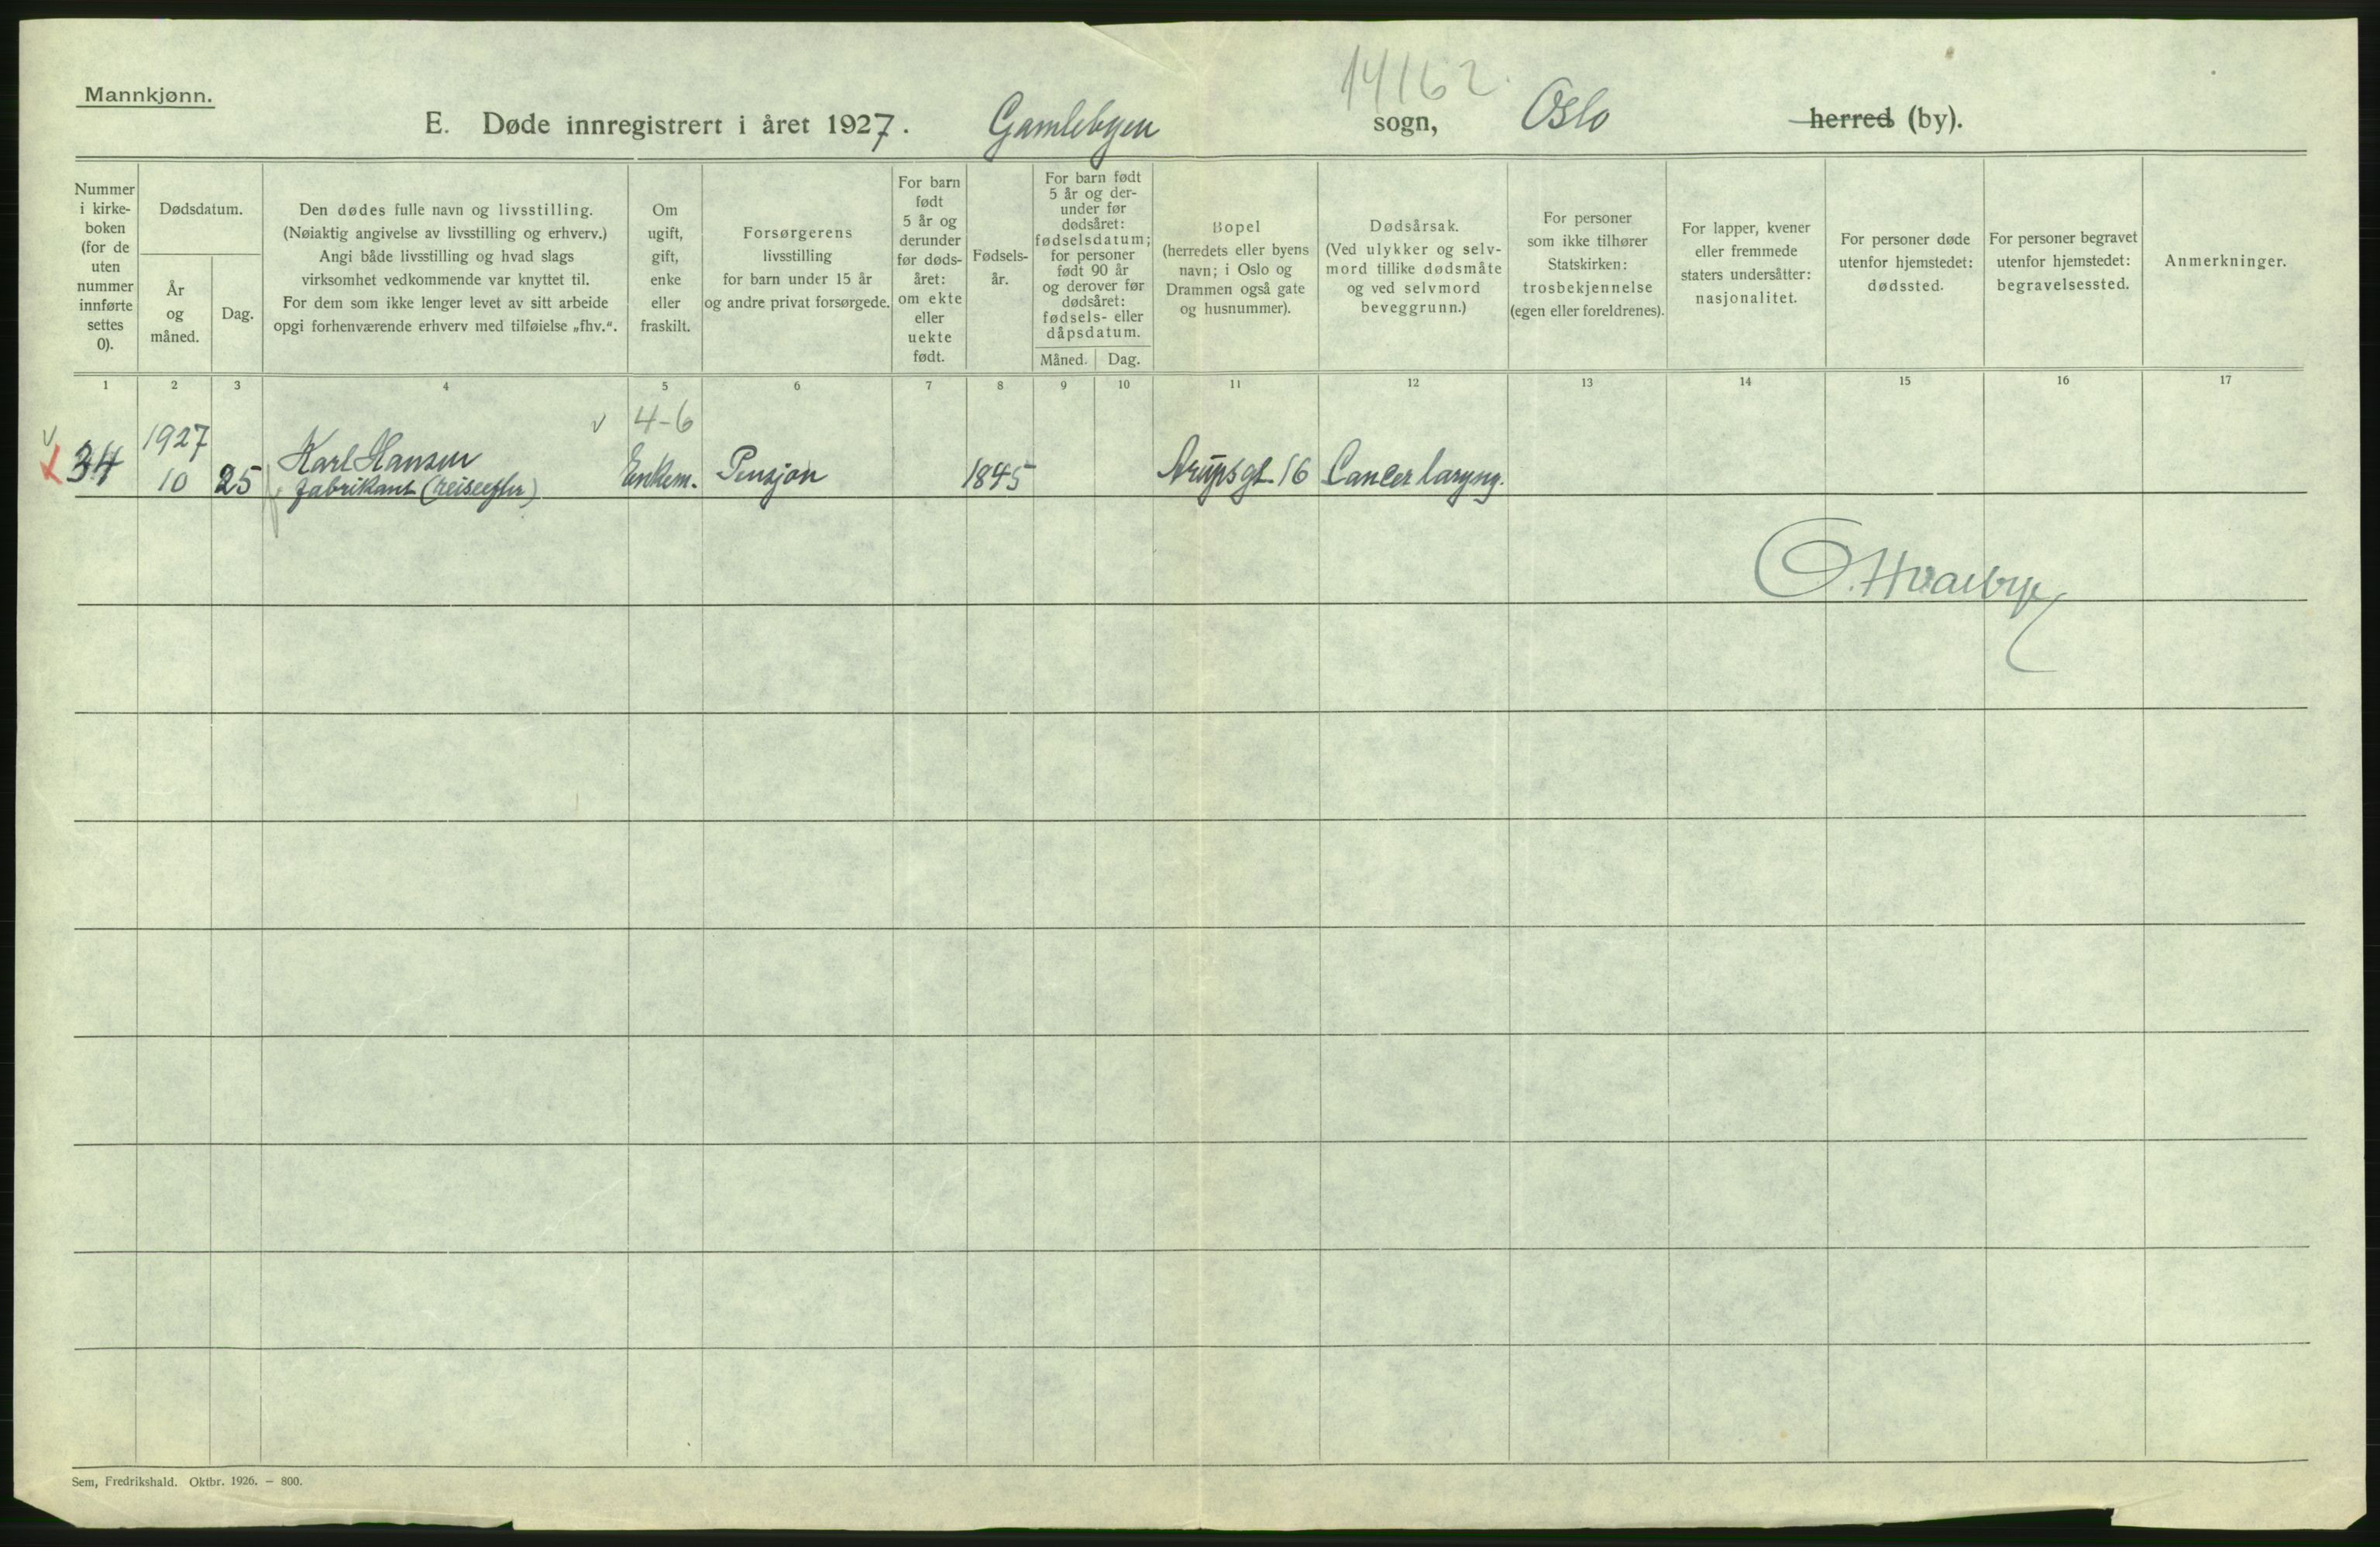 14162.
Mannkjønn.
E. Døde innregistrert i året 1927. Gamlebyen sogn, Oslo herred (by).
Nummer
i kirke-
boken
(for de
uten
nummer
innførte
settes
0).
Dødsdatum.
År
og
måned.
Dag.
Den dødes fulle navn og livsstilling.
(Nøiaktig angivelse av livsstilling og erhverv.)
Angi både livsstilling og hvad slags
virksomhet vedkommende var knyttet til.
For dem som ikke lenger levet av sitt arbeide
opgi forhenværende erhverv med tilføielse „fhv.“.
Om
ugift,
gift,
enke
eller
fraskilt.
Forsørgerens
livsstilling
for barn under 15 år
og andre privat forsørgede.
For barn
født
5 år og
derunder
før døds-
året:
om ekte
eller
uekte
født.
Fødsels-
år.
For barn født
5 år og der-
under før
dødsåret:
fødselsdatum;
for personer
født 90 år
og derover før
dødsåret:
fødsels- eller
dåpsdatum.
Måned. Dag.
Bopel
(herredets eller byens
navn; i Oslo og
Drammen også gate
og husnummer).
Dødsårsak.
(Ved ulykker og selv-
mord tillike dødsmåte
og ved selvmord
beveggrunn.)
For personer
som ikke tilhører
Statskirken:
trosbekjennelse
(egen eller foreldrenes).
For lapper, kvener
eller fremmede
staters undersåtter:
nasjonalitet.
For personer døde
utenfor hjemstedet:
dødssted.
For personer begravet
utenfor hjemstedet:
begravelsessted.
Anmerkninger.
1 2 3 4 5 6 7 8 9 10 11 12 13 14 15 16 17
4-6
1927
Karl Hansen
34 10 25 fabrikant Enkem. Pensjon 1845 Arupsgt. 16 Cancer laryng.
Sem, Fredrikshald. Oktbr. 1926. — 800.